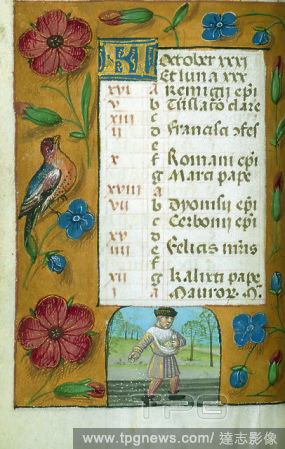 KL October xxxi
Et luna xxx.
xvi A Remigii epi
v b
xiii c
ii d Francisci ɔfes
e
x f Romani epi
g Marci pape
xviii a
vii b Dyonisii epi
c Cerbonii epi
xv d
iiii e Felicis mris
f
xii g Kalixti pape
i a Mauror. M.
TPG
www.tpgnews.com/ 達志影像